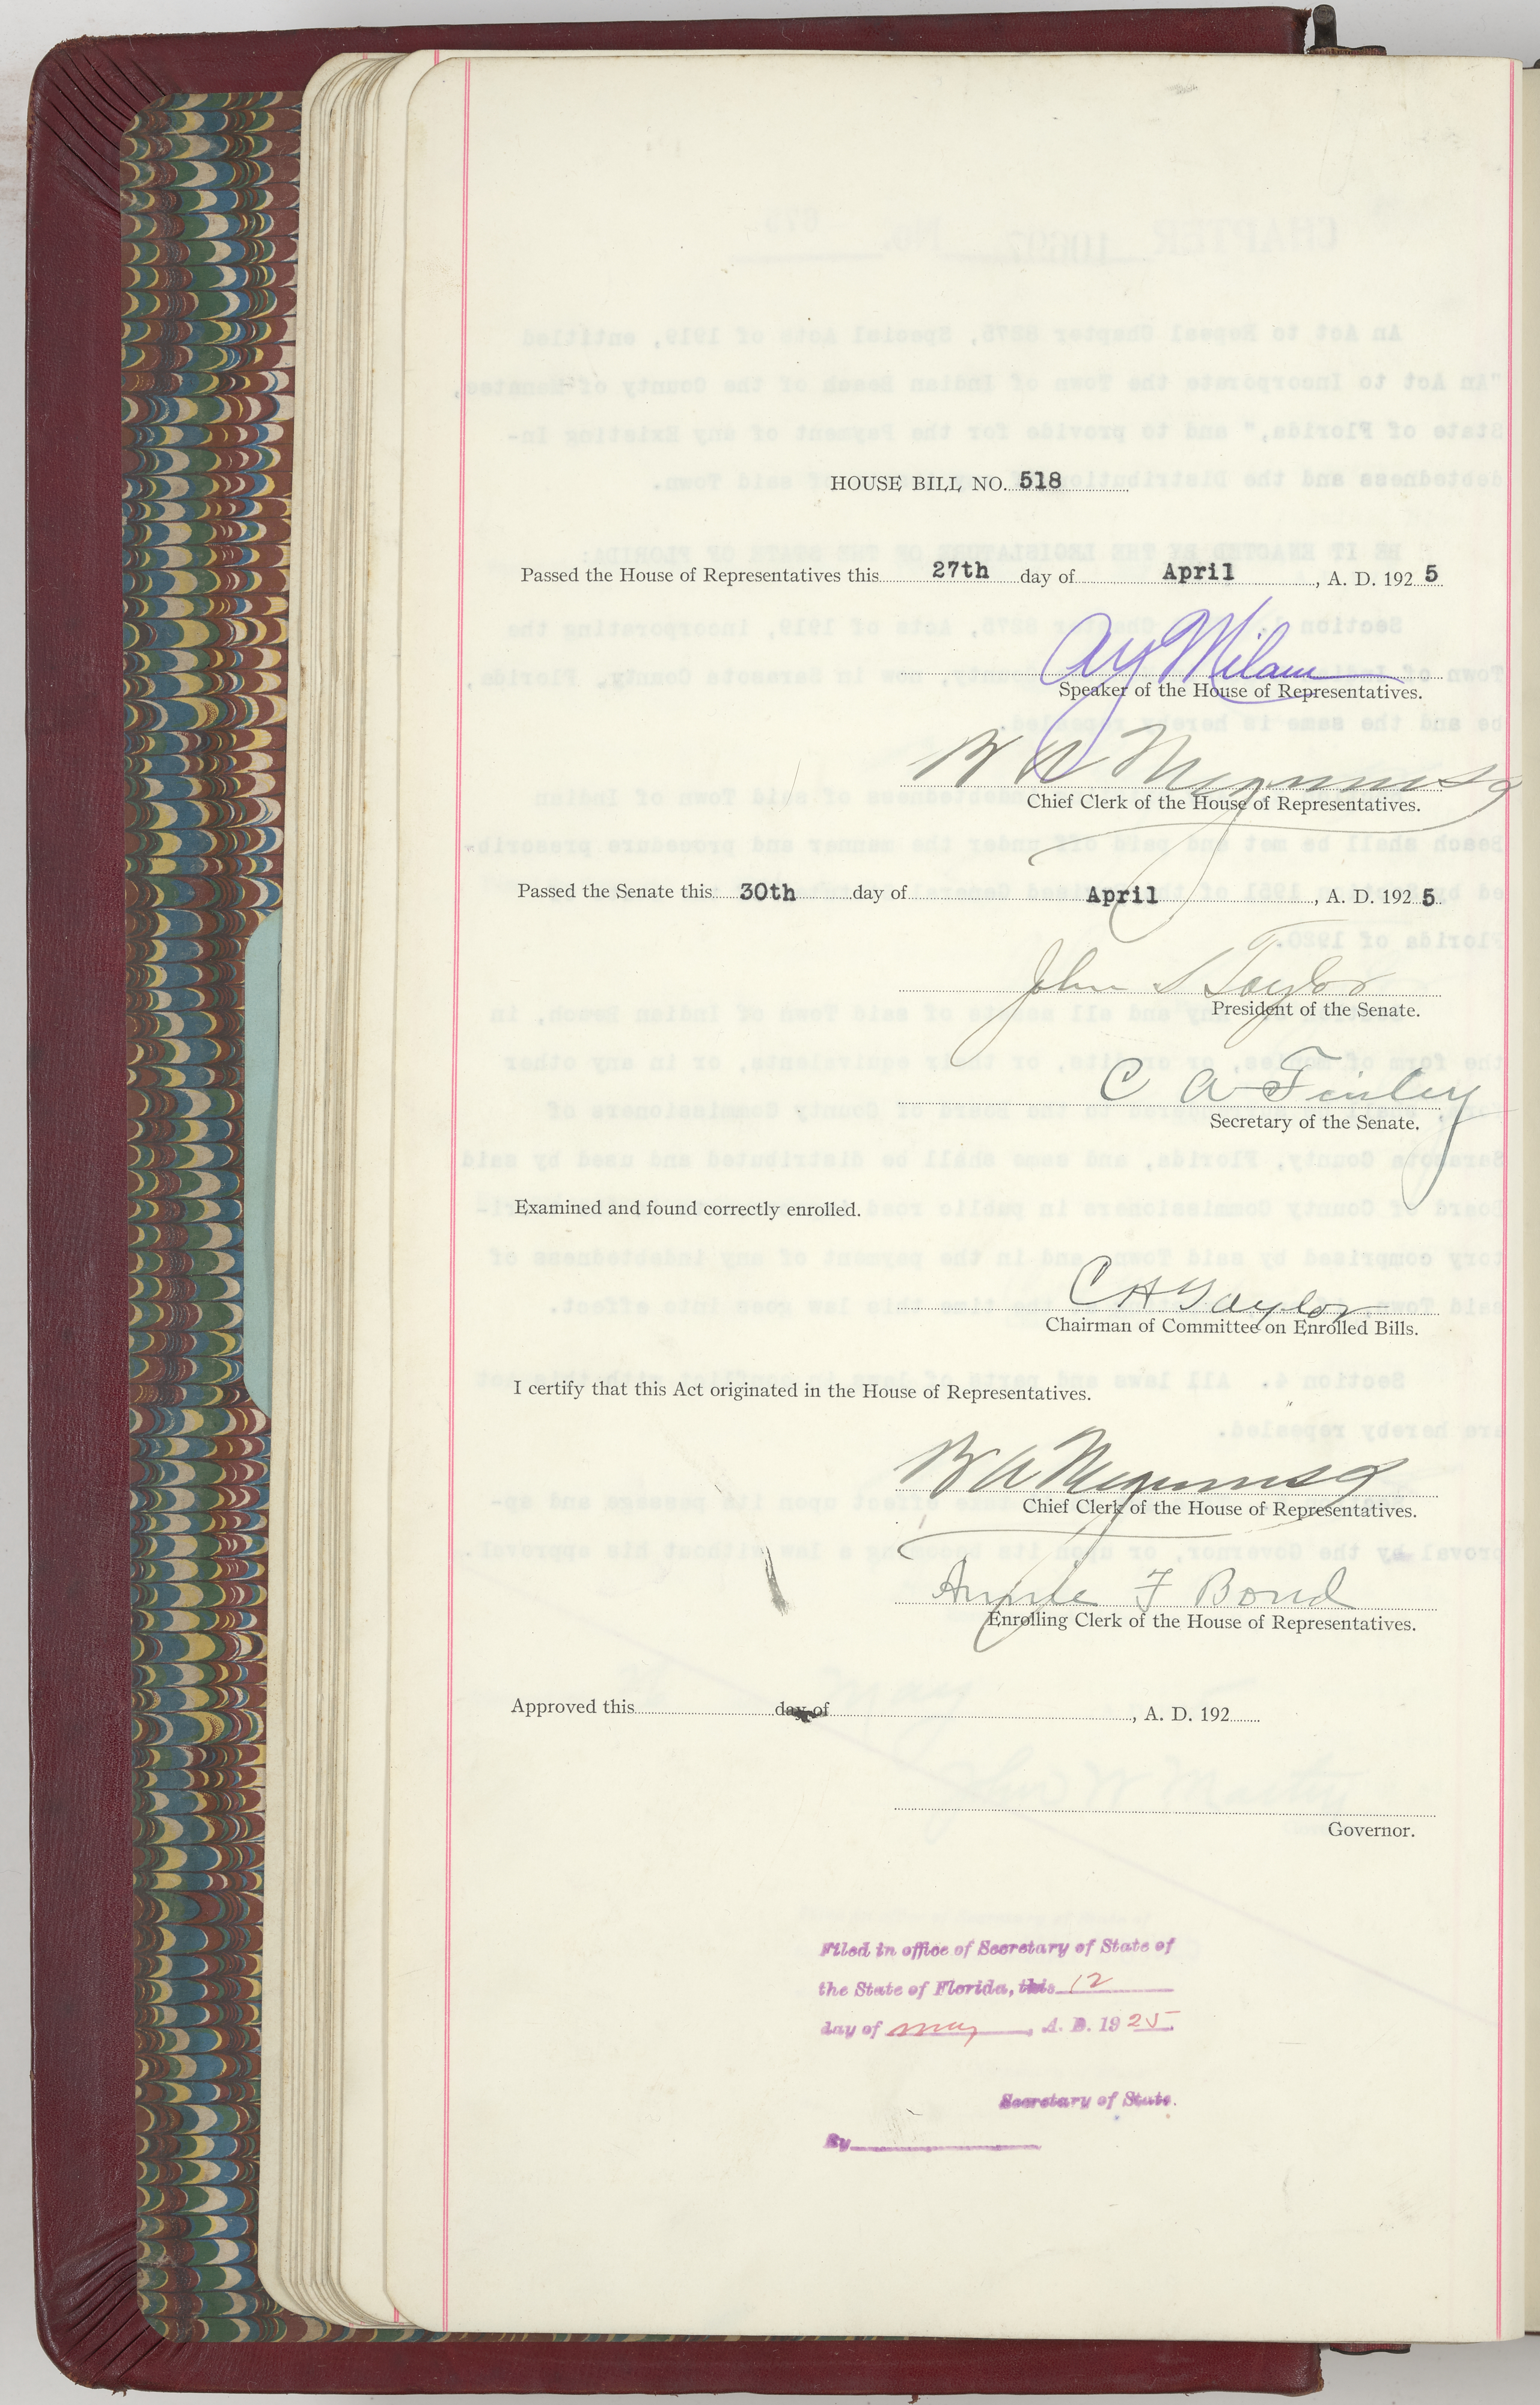 HOUSE BILL NO. 518
Passed the House of Representatives this 27th day of April, A. D. 1925
A Y Milam
Speaker of the House of Representatives.
B A Meginniss
Chief Clerk of the House of Representatives.
Passed the Senate this 30th day of April, A. D. 1925
John S Taylor
President of the Senate.
C A Finley
Secretary of the Senate.
Examined and found correctly enrolled.
C H Taylor
Chairman of Committee on Enrolled Bills.
I certify that this Act originated in the House of Representatives.
B A Meginniss
Chief Clerk of the House of Representatives.
Annie F Bond
Enrolling Clerk of the House of Representatives.
Approved this day of , A. D. 192
Governor.
Filed in office of Secretary of State of
the State of Florida, this 12
day of may, A. D. 1925.
Secretary of State.
By